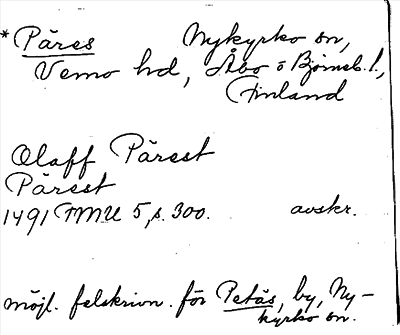 *Päres Nykyrko sn,
Vemo hd, Åbo o Björneb. l.,
Finland
Olaff Pärest
Pärest
1491 FMU 5, s. 300. avskr.
möjl. felskrivn. för Petäs, by, Ny-
kyrko sn.